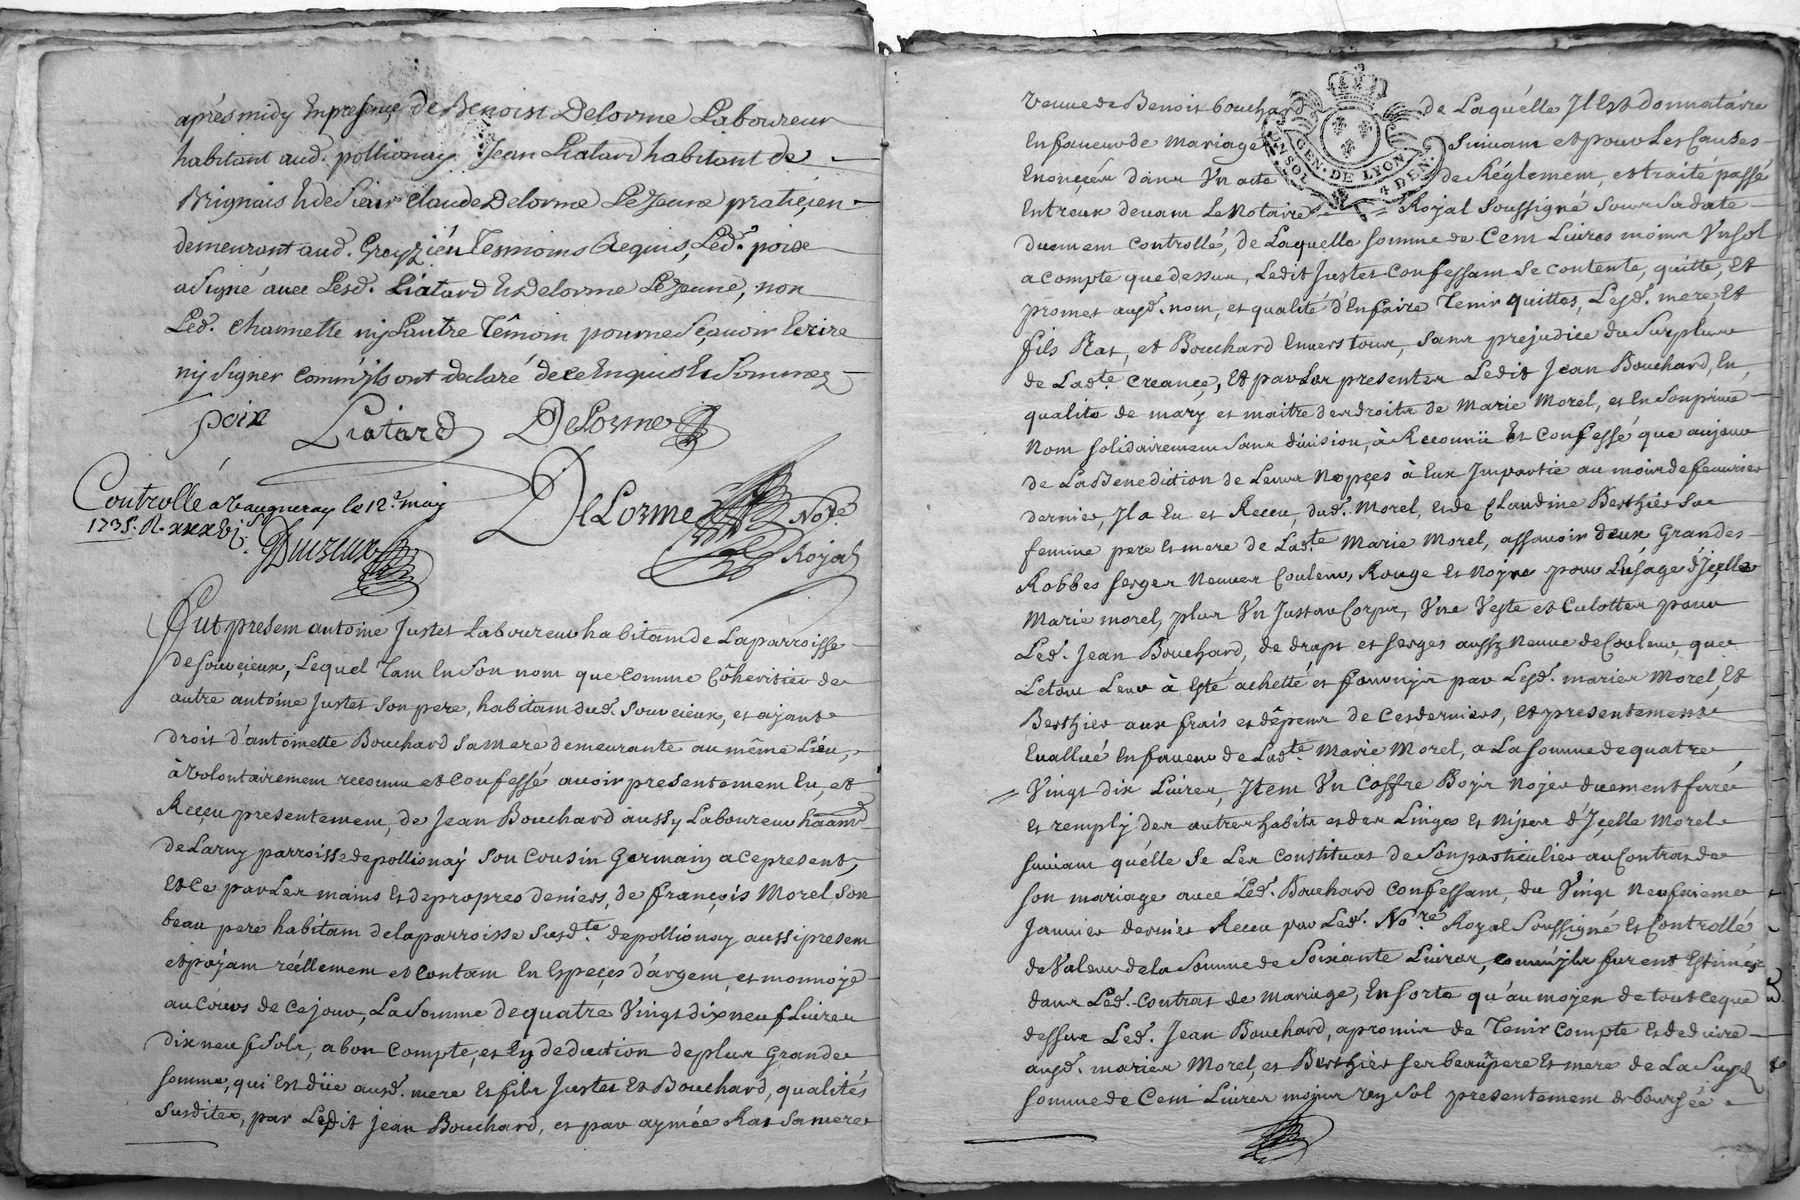 aprés midy En presence de Benoist Delorme Laboureur
habitant aud. pollionay Jean Liatard habitant de
Brignais Et de Sieur Claude Delorme Le Jeune pratiçien
demeurant aud. Grezieu Tesmoins Requis, Led. poix
a Signé avec Lesd. Liatard Et Delorme Le Jeune, non
Led. Charmette ny Lautre Têmoin pour ne Sçavoir Ecrire
ny Signer comm'ils ont declaré de ce Enquis Et Sommez
poix Liatard DeLorme
Controllé a Vaugneray le 12e. may
1735. R. xxxvi s.
DeLorme Nore.
Royal
Fut presem antoine Justet Laboureur habitam de La parroisse
de Souvcieux, Lequel Tam En Son nom que comme Côheritier de
autre antoine Justet Son pere, habitam dud. Souvcieux, et ajant
droit d'antoinette Bouchard Sa mere demeurante au même Lieu,
à Volontairement reconnu et Confessé avoir presentement Eu, et
Reçeu presentement, de Jean Bouchard aussy Laboureur habitamt
de Larny parroisse de pollionaÿ Son Cousin Germain a ce present,
Et Ce par Les mains Et de propres deniers, de françois Morel Son
beau pere habitam de la parroisse Susdte. de pollionay aussi presem
et pajam réellement et Contam En Espeçes d'argem, et monnoye
au Cours de Ce jour, La Somme de quatre Vingt dix neuf Livres
dix neuf Sols, a bon Compte, et En deduction de plus Grande
Somme, qui Est düe ausd. mere Et fils Justet Et Bouchard, qualités
Susdites, par Ledit Jean Bouchard, et par aymée Rat Sa mere
Veuve de Benoit Bouchard de Laquélle Il Est donnataire
En faveur de Mariage Suivam et pour Les Causes
Enonçées dans Un acte de Réglement, et traité passé
Entreux devam Le Notaire Royal Soussigné Sous Sa date
Duement Controllé, de Laquelle Somme de Cem Livres moins Un Sol
a compte que dessus, Ledit Justet Confessam Se contente, quitte, Et
promet ausd. nom, et qualité d'En faire Tenir quittes, Lesd. mere, Et
fils Rat, et Bouchard Envers tous, Sans prejudice du Surplus
de Ladte. Creance, Et par Les presentes Ledit Jean Bouchard, En
qualité de mary et maitre des droits de Marie Morel, et En Son privé
Nom Solidairement Sans division, à Reconnü Et Confessé que au jour
de La Benediction de Leurs Nopçes à Eux Impartie au mois de fevrier
dernier, Il a Eu et Receu, dud. Morel, et de Claudine Berthier Sa
femme pere Et mere de Ladte. Marie Morel, assavoir deux Grandes
Robbes Serges Neuves Couleurs Rouge Et Noyre pour L'usage d'Içelle
Marie Morel, plus Un Justaucorps, Une Veste et Culottes pour
Led. Jean Bouchard, de draps et Serges aussy Neuve de Couleur, que
Le tout Leur à Esté achetté et fourny par Lesd. mariez Morel, Et
Berthier aux frais et dêpens de Ces derniers, et presentement
Evallué En faveur de Ladte. Marie Morel, a La Somme de quatre
Vingt dix Livres, Item Un Coffre Bois Noyer duement ferré
Et remply des autres habits et des Linges Et Nipes d'Içelle Morel
Suivam qu'élle Se Les Constituat de Son particulier au Contrat de
Son mariage avec Led. Bouchard Confessam, du Vingt Neufvieme
Janvier dernier Receu par Led. Nore. Royal Soussigné Et Controllé
de Valeur de la Somme de Soixante Livres, comm'ils furent Estimés
dans Led. Contrat de Mariage, En Sorte qu'au moyen de tout ce que
dessus Led. Jean Bouchard, a promis de Tenir Compte Et deduire
ausd. mariez Morel, et Berthier Ses beaux pere Et mere de La Susd
Somme de Cent Livres moins un Sol presentement deboursée
GEN. DE LYON
UN SOL 4 DEN.